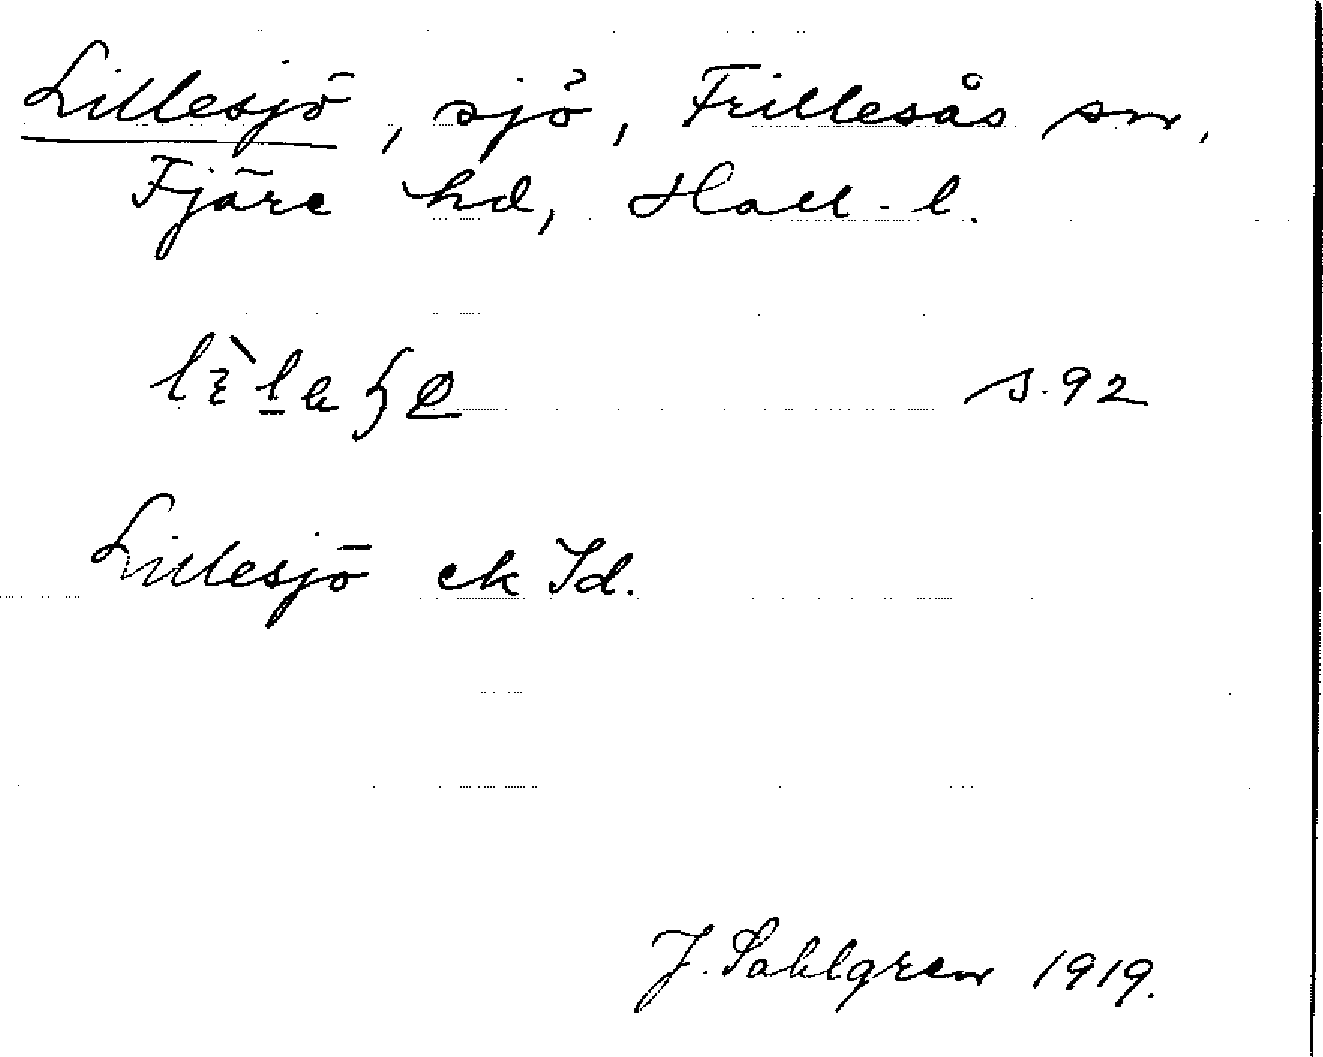 Lillesjö, sjö, Frillesås sn,
Fjäre hd, Hall. l.
s. 92
Lillesjö ek Id.
J. Sahlgren 1919.